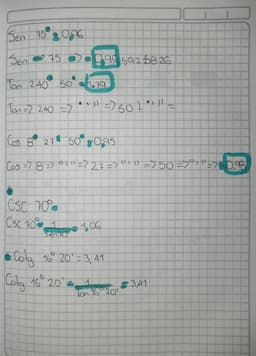 Sen 75° = 0,96
Sen => 75 => = 0,965925826
Tan 240° 50' = 1,79
Tan => 240 => °,,, => 50 °,,, =
Cos 8° 27' 50" = 0,95
Cos => 8 => °,,, => 27 => °,,, => 50 => °,,, => 0,95
CSC 70° =
CSC 70° = 1 = 1,06
Cotg 16° 20' = 3,41
Cotg 16° 20' = 1 = 3,41
Tan 16° 20'